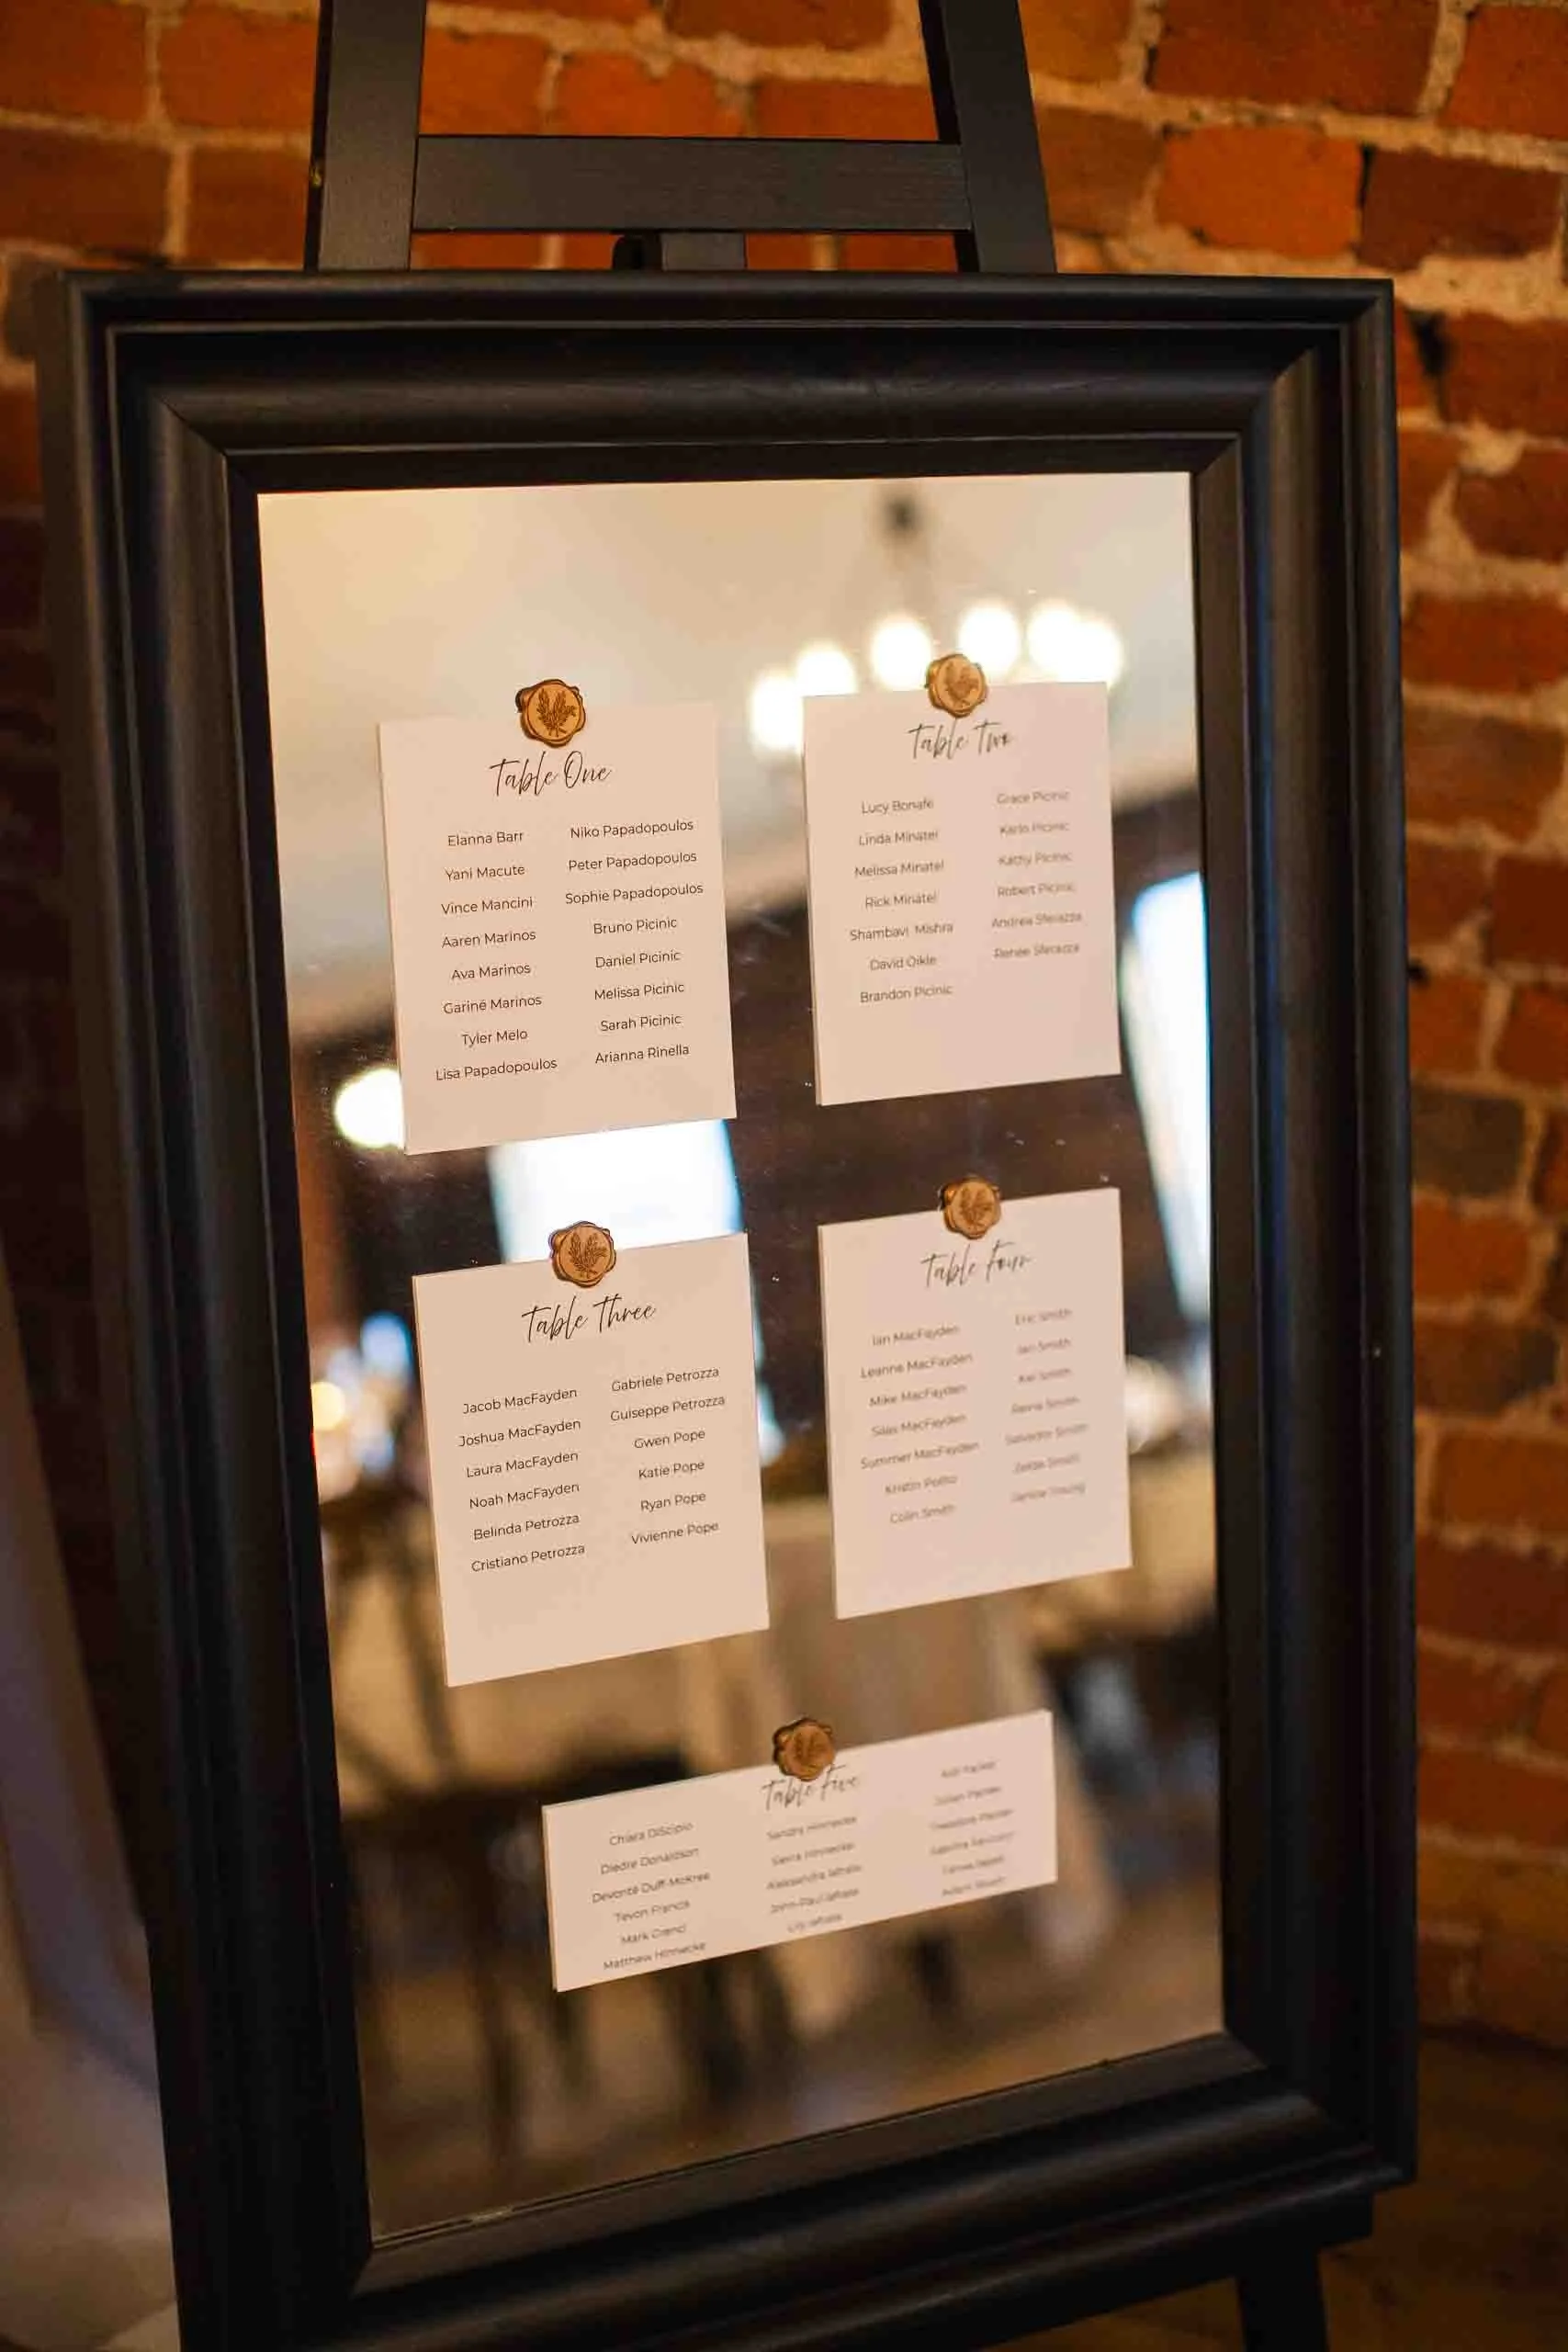 Table One
Elanna Barr
Yani Macute
Vince Mancini
Aaren Marinos
Ava Marinos
Gariné Marinos
Tyler Melo
Lisa Papadopoulos
Niko Papadopoulos
Peter Papadopoulos
Sophie Papadopoulos
Bruno Picinic
Daniel Picinic
Melissa Picinic
Sarah Picinic
Arianna Rinella
Table Two
Lucy Bonafe
Linda Minatel
Melissa Minatel
Rick Minatel
Shambavi Mishra
David Oikle
Brandon Picinic
Grace Picinic
Karlo Picinic
Kathy Picinic
Robert Picinic
Andrea Sferazza
Renee Sferazza
Table Three
Jacob MacFayden
Joshua MacFayden
Laura MacFayden
Noah MacFayden
Belinda Petrozza
Cristiano Petrozza
Gabriele Petrozza
Guiseppe Petrozza
Gwen Pope
Katie Pope
Ryan Pope
Vivienne Pope
Table Four
Ian MacFayden
Leanne MacFayden
Mike MacFayden
Silas MacFayden
Summer MacFayden
Kristin Polito
Colin Smith
Eric Smith
Ian Smith
Kai Smith
Reina Smith
Salvador Smith
Zelda Smith
Janice Young
Table Five
Chiara DiScipio
Diedre Donaldson
Devonté Duff-McKree
Tevon Francis
Mark Grenci
Matthew Hinnecke
Sandra Hinnecke
Sierra Hinnecke
Alessandra Iafrate
John-Paul Iafrate
Lily Iafrate
Julian Packer
Theodore Packer
Sabrina
Adam